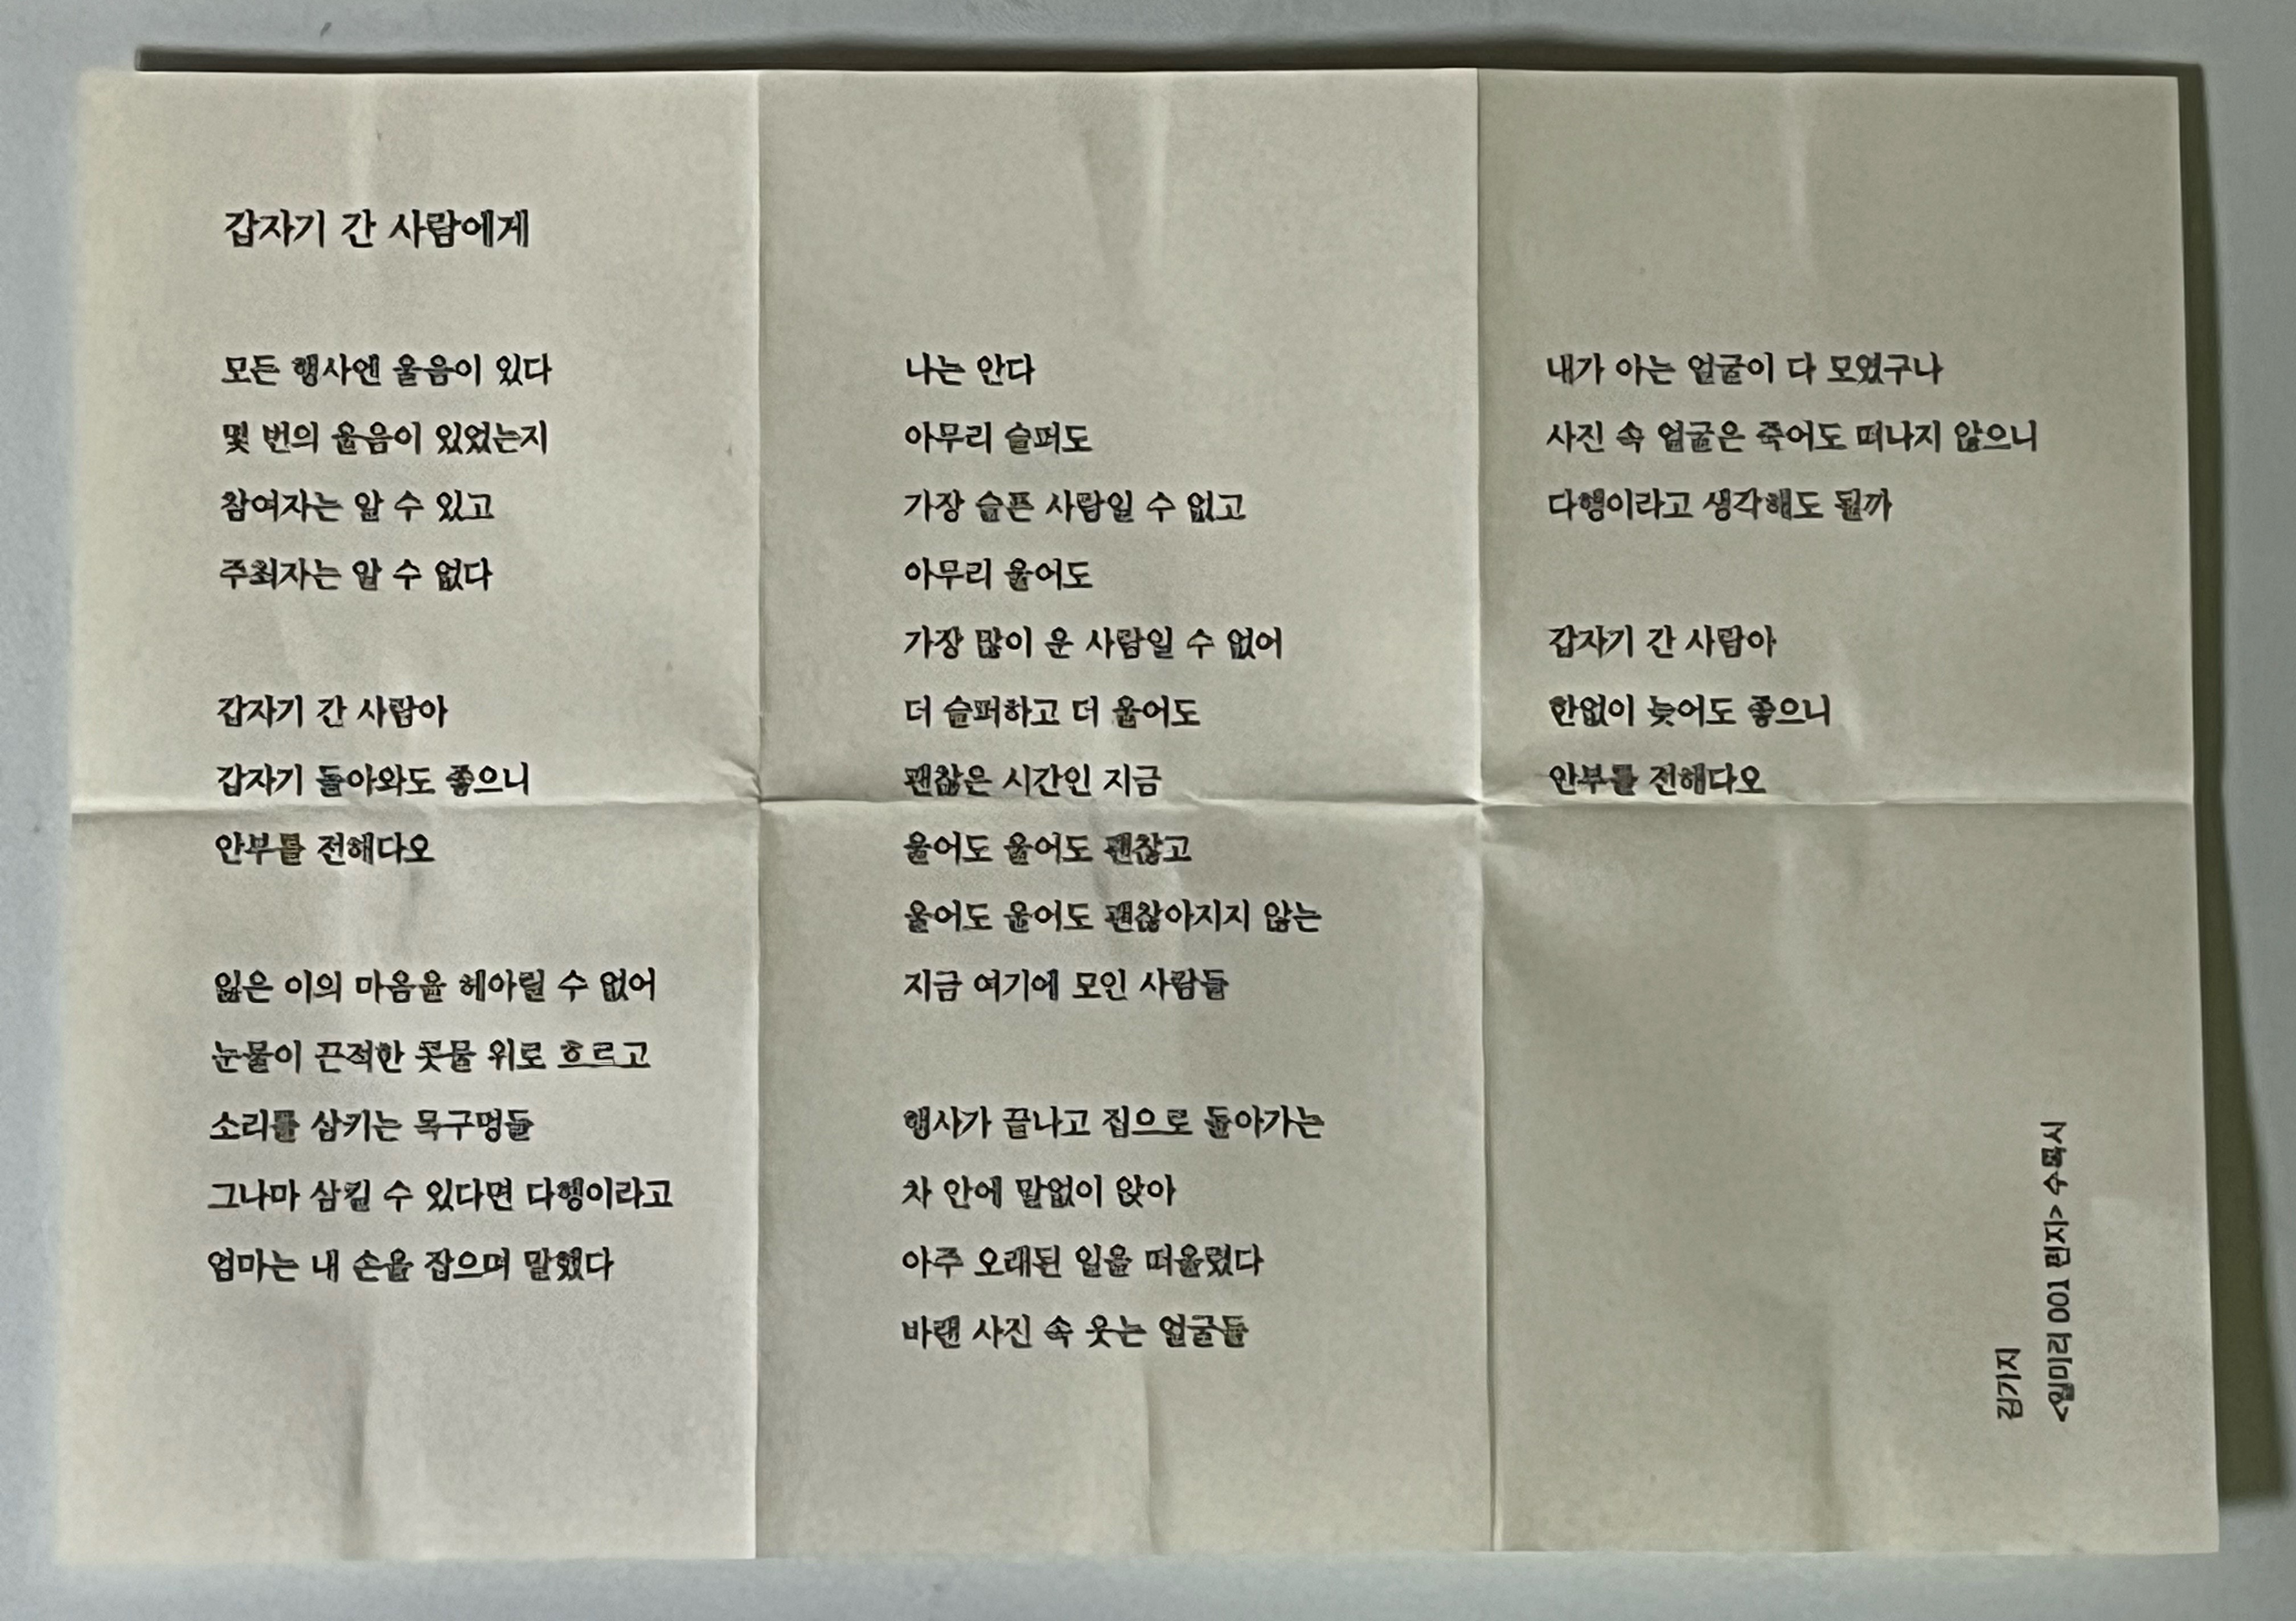 갑자기 간 사람에게
모든 행사엔 울음이 있다
몇 번의 울음이 있었는지
참여자는 알 수 있고
주최자는 알 수 없다
갑자기 간 사람아
갑자기 돌아와도 좋으니
안부를 전해다오
잃은 이의 마음을 헤아릴 수 없어
눈물이 끈적한 콧물 위로 흐르고
소리를 삼키는 목구멍들
그나마 삼킬 수 있다면 다행이라고
엄마는 내 손을 잡으며 말했다
나는 안다
아무리 슬퍼도
가장 슬픈 사람일 수 없고
아무리 울어도
가장 많이 운 사람일 수 없어
더 슬퍼하고 더 울어도
괜찮은 시간인 지금
울어도 울어도 괜찮고
울어도 울어도 괜찮아지지 않는
지금 여기에 모인 사람들
행사가 끝나고 집으로 돌아가는
차 안에 말없이 앉아
아주 오래된 일을 떠올렸다
바랜 사진 속 웃는 얼굴들
내가 아는 얼굴이 다 모였구나
사진 속 얼굴은 죽어도 떠나지 않으니
다행이라고 생각해도 될까
갑자기 간 사람아
한없이 늦어도 좋으니
안부를 전해다오
김기지
001 편지> 수록시